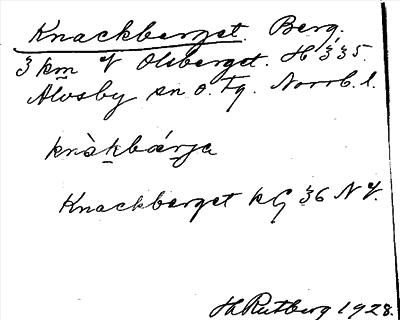 Knackberget. Berg.
3 km V Olsberget. H 335.
Älvsby sn o. Tg. Norrb. l.
knàkbærja
Knackberget kG 36 NV.
Hh Rutberg 1928.